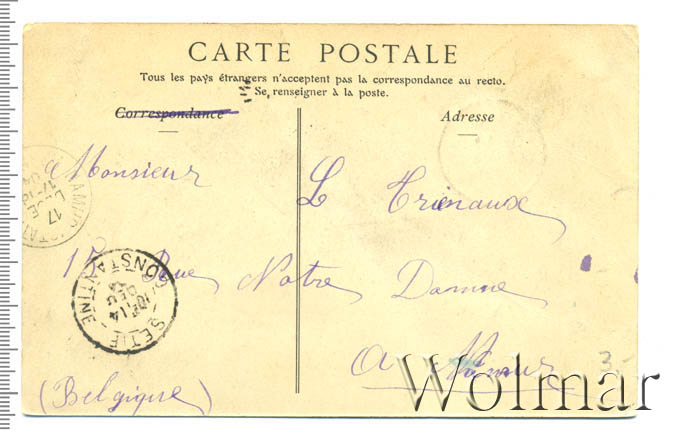 CARTE POSTALE
Tous les pays étrangers n'acceptent pas la correspondance au recto.
Se renseigner à la poste.
Correspondance
Adresse
Monsieur L
15 Rue Notre Damme
A Namur
(Belgique)
SETIF
CONSTANTINE
3,-
Wolmar